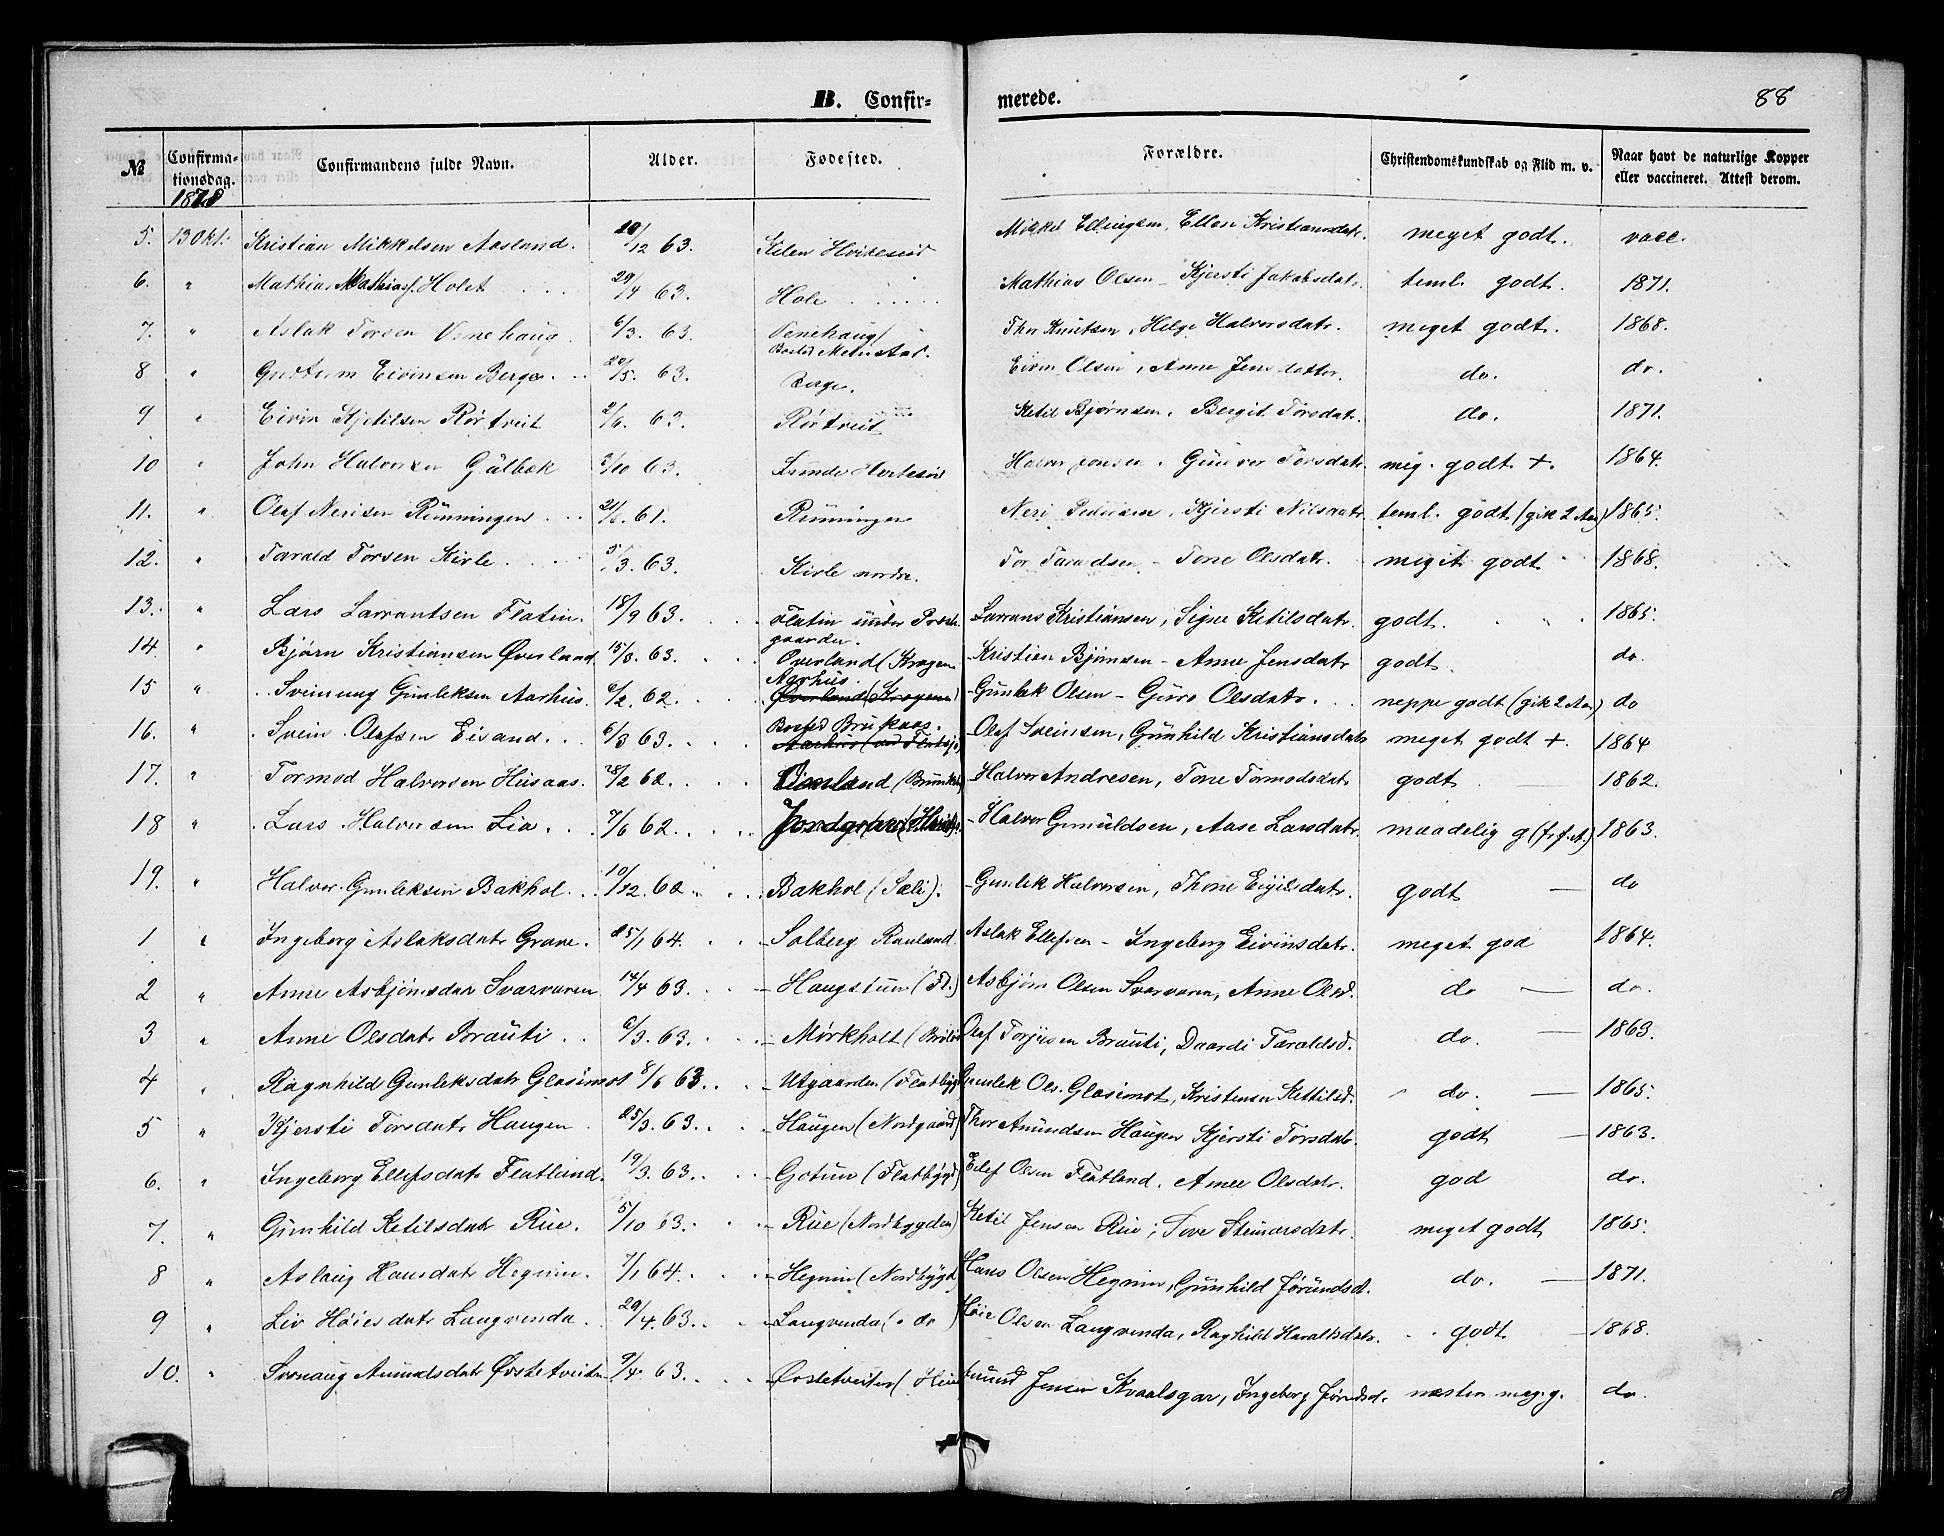 B. Confir- merede. 88
№ Confirma-tionsdag. Confirmandens fulde Navn. Alder. Fødested. Forældre. Christendomskundskab og Flid m. v. Naar havt de naturlige Kopper eller vaccineret. Attest derom.
1878
5. 13 Okt. Kristian Mikkelsen Aasland. /12 63. Kilen Hviteseid Mikkel Ellingsen, Ellen Kristiansdatr. meget godt. vacc.
6. " Mathias Mathiasf. Holet 29/4 63. Hole Mathias Olsen - Kjersti Jakobsdatr. teml. godt. 1871.
7. " Aslak Torsen Venehaug 6/3. 63. Venehaug/ Bosted Metveit Aas. Thor Knutsen, Helge Halvorsdatr. meget godt. 1868.
8 " Guttorm Eivinsen Berge. 20/5. 63. Berge. Eivin Olsen, Anne Jensdatter. do. do.
9 " Eivin Kjetilsen Rørtveit 2/6. 63. Rørtveit Ketil Bjørnsen, Bergit Torsdatr. do. 1871.
10 " John Halvorsen Gülbek 2/10 63. Lunde Hviteseid Halvor Jonsen, Gunvor Torsdatr. meg. godt +. 1864.
11. " Olaf Nerisen Rünningen 21/6. 61. Rünningen Neri Pedersen, Kjersti Nilsdatr teml. godt (gik 2 Aar) 1865.
12. " Tarald Torsen Kirle 5/3. 63. Kirle nordre. Tor Taraldsen - Tone Olsdatr. meget godt 1868.
13. " Lars Lavrantsen Flatin. 18/9 63. Flatin under Præstegaarden. Lavrans Kristiansen, Signe Ketilsdatr. godt. 1865.
14. " Bjørn Kristiansen Øverland 15/3. 63. Øverland (Krogen Kristian Bjørnsen - Anne Jensdatr godt. do.
15 " Sveinung Gunleksen Aarhus. 6/2. 62. Aarhus. Øverland (Krogene) Gunlek Olsen - Guro Olsdatr. neppe godt (gik 2 Aar) do
16. " Svein Olafsen Eisand. 6/3 63. Bosted Brukaas. Aarhus (ved Flatsjø Olaf Sveinsen, Gunhild Kristiansdatr meget godt +. 1864
17. " Tormod Halvorsen Husaas. 28/2 62. Halvor Andresen, Tone Tormodsdatr godt 1862.
18 " Lars Halvorsen Lia. 7/6 62. Halvor Gunuldsen, Aase Larsdatr. maadelig g (f. f. A.) 1863.
19. " Halvor Gunleksen Bakhol. 10/12. 62. Bakhol (Sæli). Gunlek Halvorsen, Thone Eigilsdatr. godt do
1 " Ingeborg Aslaksdatr Grave. 25/1 64. Solberg Rauland. Aslak Ellefsen - Ingeborg Eivinsdatr. meget god 1864.
2 " Anne Asbjørnsdatr Svarvaren 14/4 63. Haugstun (Fl.) Asbjørn Olsen Svarvaren, Anne Olsd. do do.
3 " Anne Olsdatr Brauti. 6/3. 63. Mørkholt ( Olaf Torjusen Brauti, Daardi Taraldsd. do. 1863.
4 " Ragnhild Gunleksdatr Glosimot 8/6 63. Utgaarden (Flatbygd Gunlek Ols. Glosimot, Kristense Kettilsd. do. 1865.
5 " Kjersti Torsdatr Haugen 25/3. 63. Haugen (Nordgaard) Thor Amundsen Haugen Kjersti Torsdatr. godt 1863.
6. " Ingeborg Ellefsdatr Flatland. 19/3. 63. Gotun (Flatbygd) Ellef Olsen Flatland. Anne Olsdatr. god do.
7. " Gunhild Ketilsdatr Rue. 5/10 63. Rue (Nordbygden) Ketil Jensen Rue; Tove Steinarsdatr. meget godt 1865.
8 " Aslaug Hansdatr Hegnin. 7/1 64. Hegnin (Nordbygd) Hans Olsen Hegnin, Gunhild Jørundsd. do. 1871.
9 " Liv Høiesdatr Langvenda. 29/4. 63. Langvenda ( " do ) Høie Olsen Langvenda, Raghild Haraldsdatr. godt 1868.
10. " Svanaug Amundsdatr Øvstetveiten 9/4. 63. Øvstetveiten ( Amund Jensen Kvaalsgar, Ingeborg Jørundsd. næsten meg. g. do.